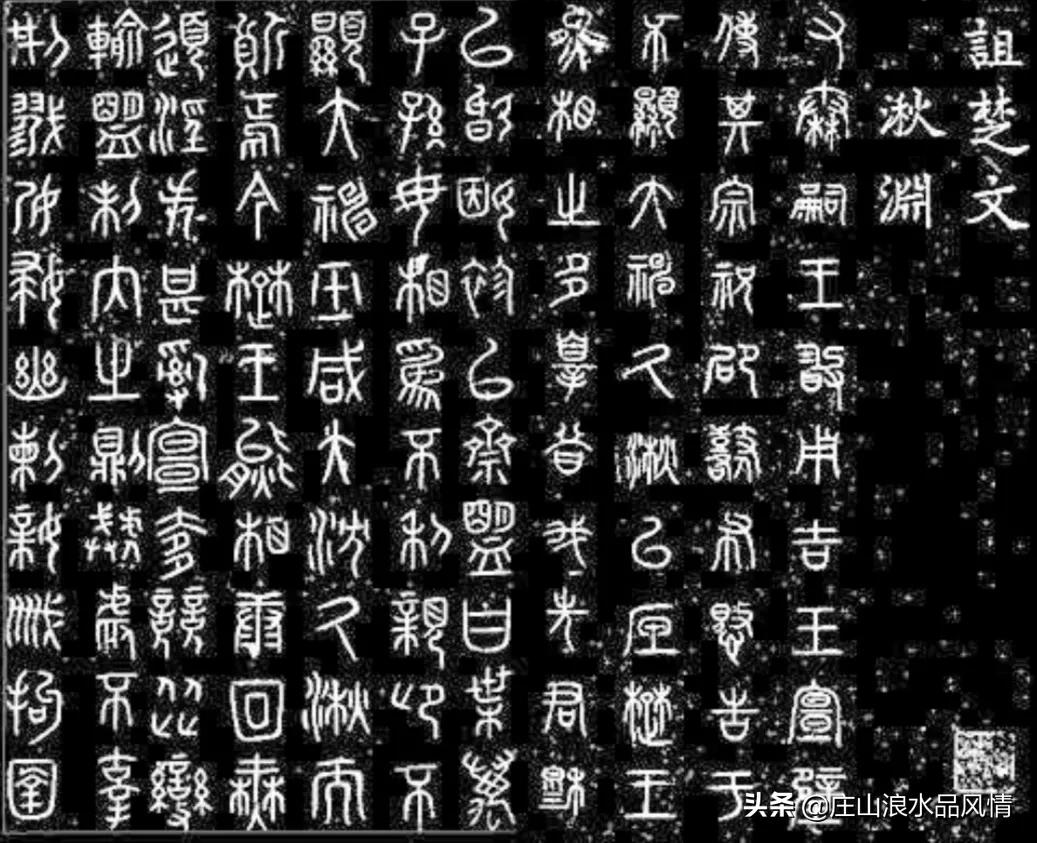 詛楚文
湫淵
又秦嗣王敢用吉玉宣璧
使其宗祝邵鼛布憝告于
不顯大神久湫以底楚王
熊相之多辠昔我先君穆
以婚姻袗以齋盟曰枼萬
子孫毋相為不利親卬不
顯大神巫咸大沈久湫而
質焉今楚王熊相康回無
道淫失甚亂宣侈競從變
輸盟制內之則暴虐不辜
刑戮孕婦幽刺親戚拘圉
头条 @庄山浪水品风情